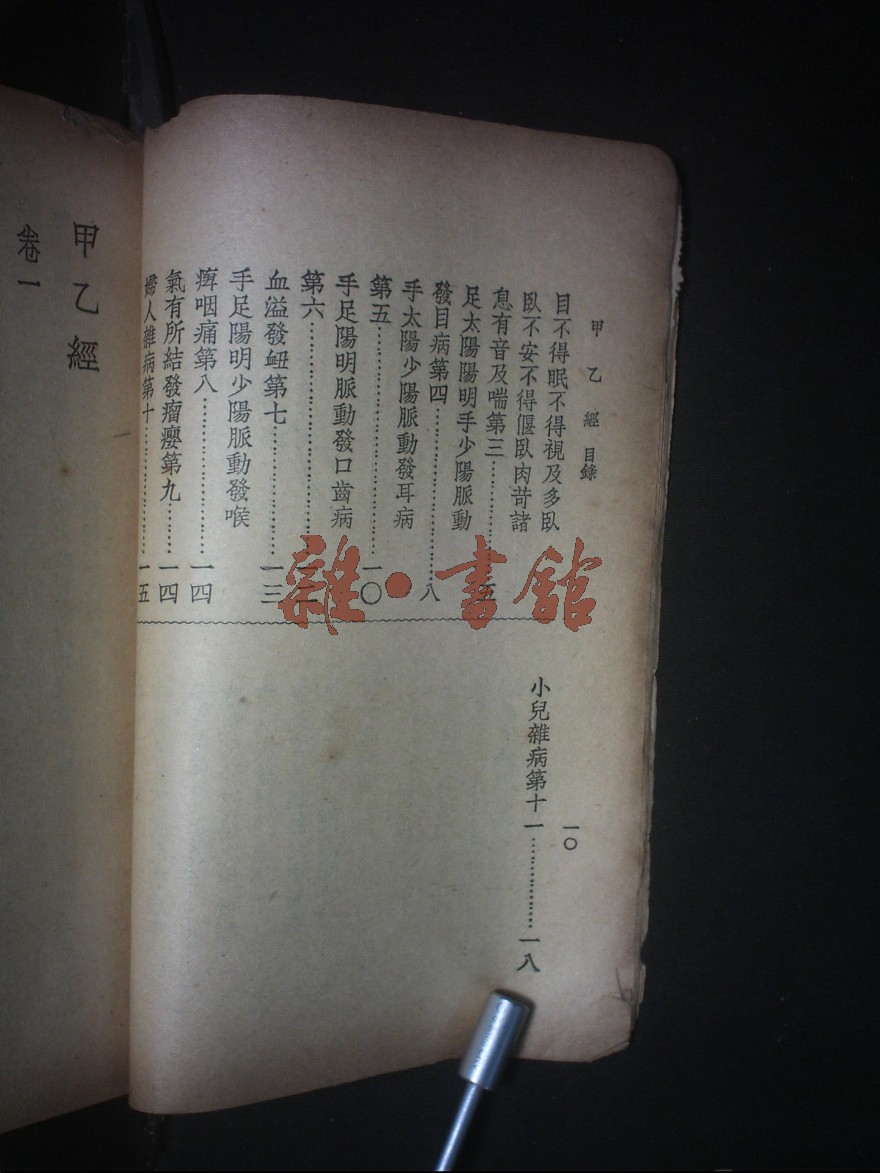 甲乙經 目錄
目不得眠不得視及多臥
臥不安不得偃臥肉苛諸
息有音及喘第三……五
足太陽陽明手少陽脈動
發目病第四……八
手太陽少陽脈動發耳病
第五……一〇
手足陽明脈動發口齒病
第六……
血溢發衄第七……一三
手足陽明少陽脈動發喉
痺咽痛第八……一四
氣有所結發瘤癭第九……一四
婦人雜病第十……一五
一〇
小兒雜病第十一……一八
甲乙經
卷一
雜·書館